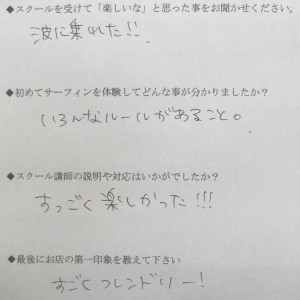 ◆スクールを受けて「楽しいな」と思った事をお聞かせください。
波に乗れた!!
◆初めてサーフィンを体験してどんな事が分かりましたか？
いろんなルールがあること。
◆スクール講師の説明や対応はいかがでしたか？
すっごく楽しかった!!!
◆最後にお店の第一印象を教えて下さい
すごくフレンドリー!